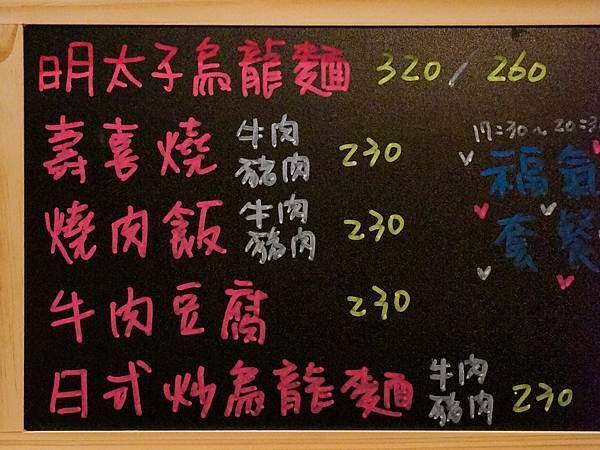 明太子烏龍麵 320 / 260
壽喜燒 牛肉 豬肉 230
燒肉飯 牛肉 豬肉 230
牛肉豆腐 230
日式炒烏龍麵 牛肉 豬肉 230
17:30~20:3
福氣
套餐